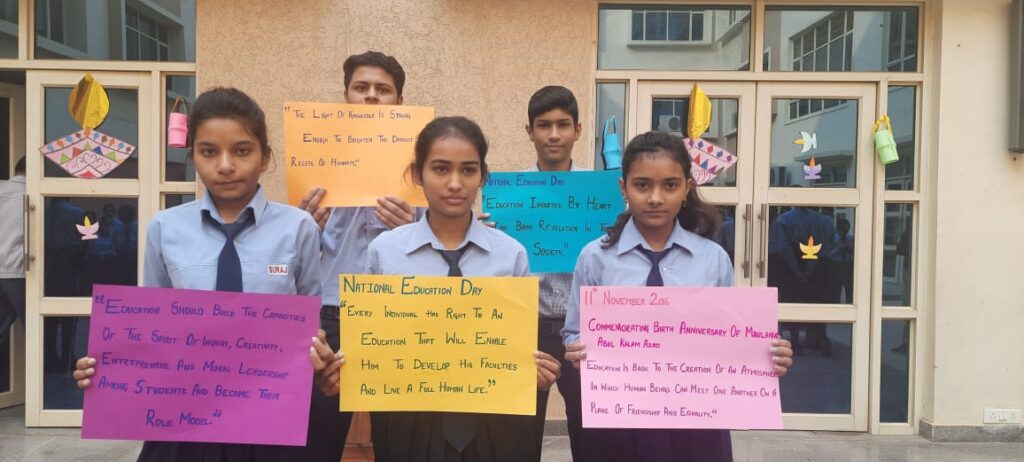 "The Light Of Knowledge Is Strong
Enough To Brighten The Darkest
Recess Of Humanity."
National Education Day
"Education Imparted By Heart
Can Bring Revolution In The
Society."
SURAJ
"Education Should Build The Capacities
Of The Spirit Of Inquiry, Creativity,
Entreprenrial And Moral Leadership
Among Students And Become Their
Role Model."
National Education Day
"Every Individual Has Right To An
Education That Will Enable
Him To Develop His Faculties
And Live A Full Human Life."
11th November 2016
Commemorating Birth Anniversary Of Maulana
Abul Kalam Azad
Education Is Base To The Creation Of An Atmosphere
In Which Human Beings Can Meet One Another On A
Plane Of Friendship And Equality."